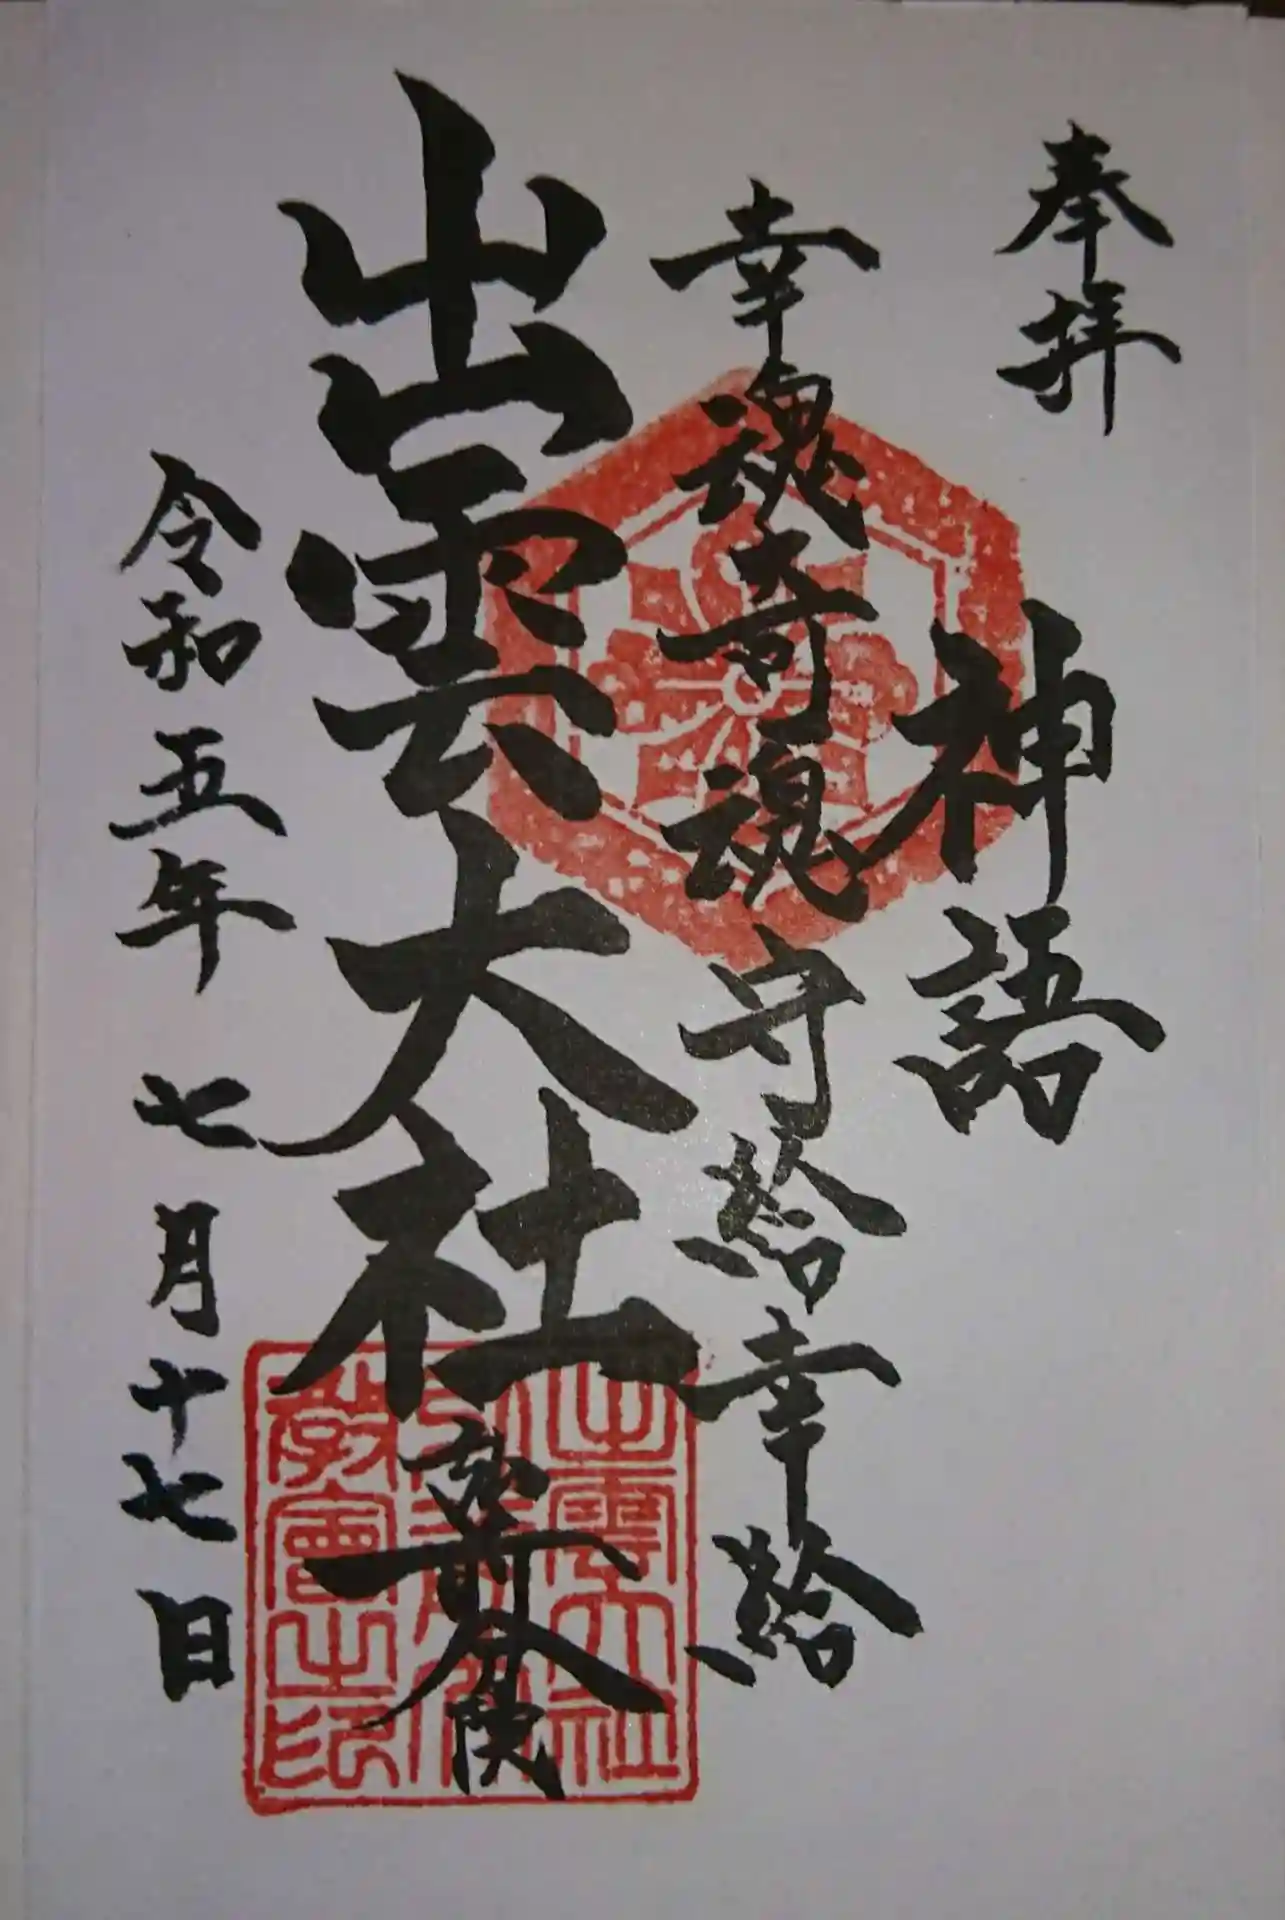 奉拝
神語
幸魂奇魂守給幸給
出雲大社
弘前分院
令和五年 七月十七日
出雲大社
教會之印